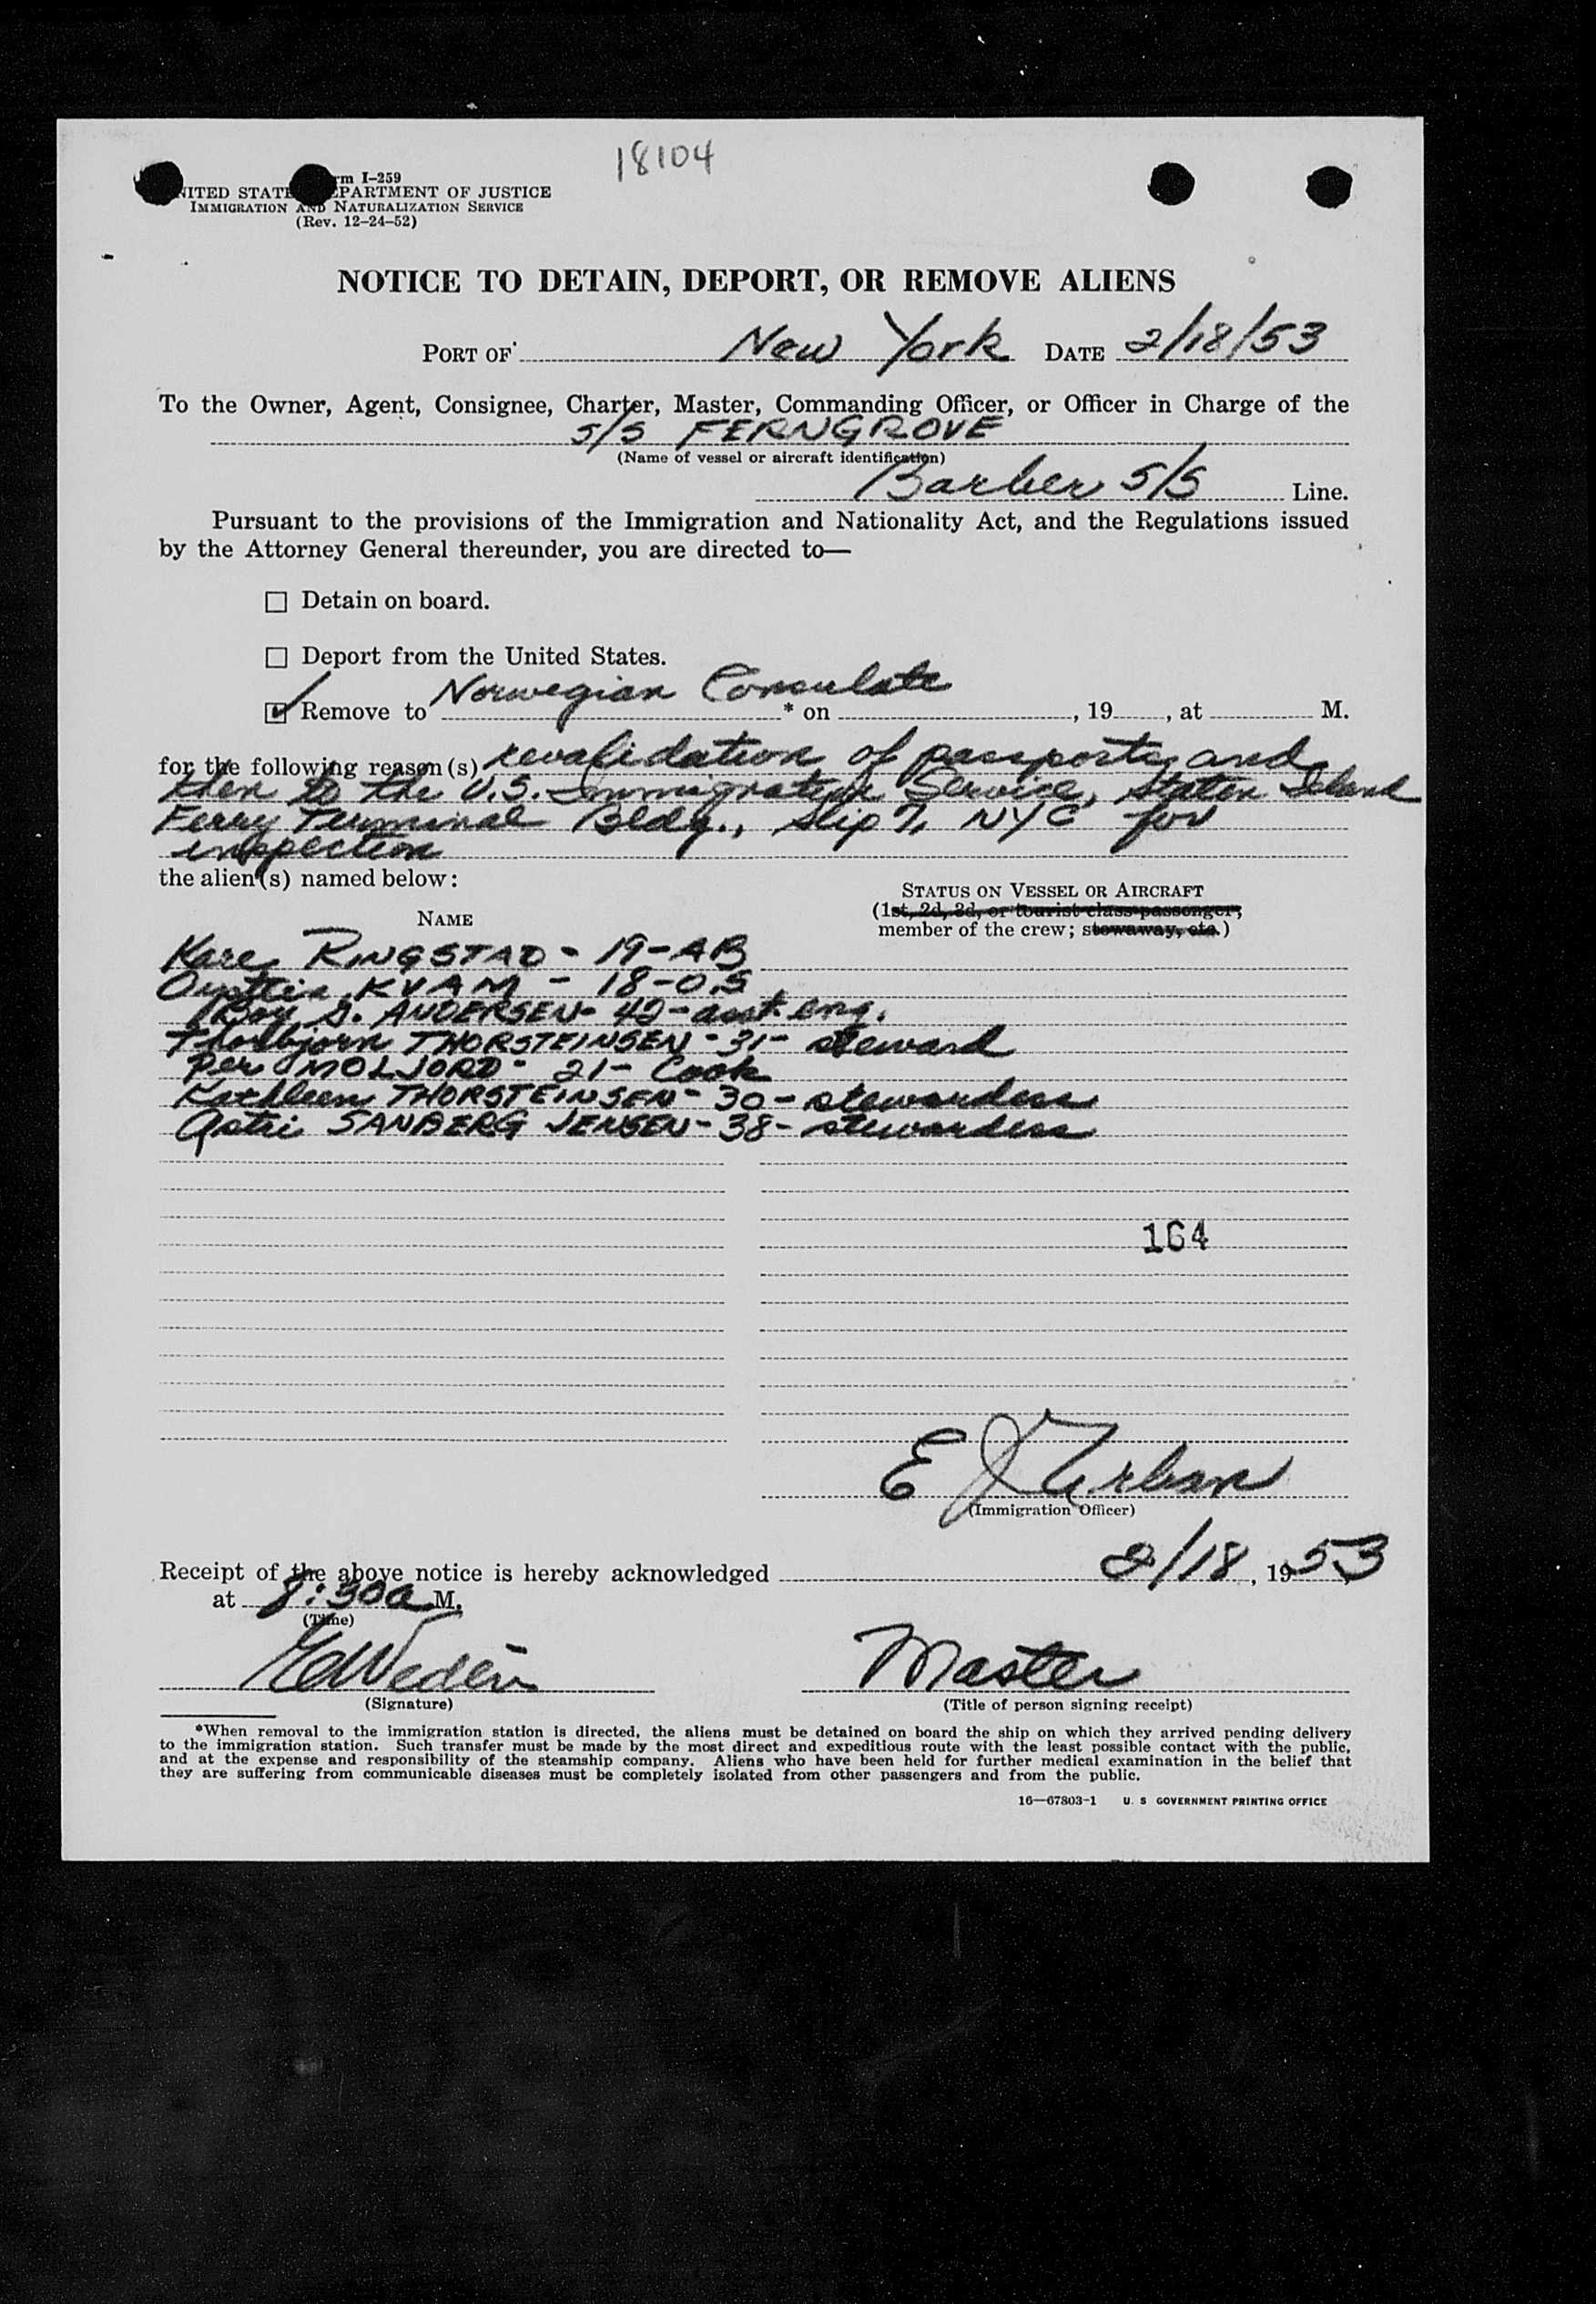 18104
rm I-259
NITED STATE PARTMENT OF JUSTICE
IMMIGRATION AND NATURALIZATION SERVICE
(Rev. 12-24-52)
NOTICE TO DETAIN, DEPORT, OR REMOVE ALIENS
PORT OF New York DATE 2/18/53
To the Owner, Agent, Consignee, Charter, Master, Commanding Officer, or Officer in Charge of the
S/S FERNGROVE
(Name of vessel or aircraft identification)
Barber S/S Line.
Pursuant to the provisions of the Immigration and Nationality Act, and the Regulations issued
by the Attorney General thereunder, you are directed to—
☐ Detain on board.
☐ Deport from the United States.
☑ Remove to Norwegian Consulate * on , 19 , at M.
for the following reason(s) revalidation of passports, and
then to the U.S. Immigration Service, Staten Island
Ferry Terminal Bldg., Slip 7, NYC for
inspection
the alien(s) named below:
STATUS ON VESSEL OR AIRCRAFT
(1st, 2d, 3d, or tourist class passenger;
NAME
member of the crew; stowaway, etc.)
Kare RINGSTAD - 19 - AB
KVAM - 18 - O.S
Roy S. ANDERSEN - 42 - asst. eng.
Thorbjorn THORSTEINSEN - 31 - steward
Per MOLJORD - 21 - Cook
Kathleen THORSTEINSEN - 30 - stewardess
Astri SANBERG JENSEN - 38 - stewardess
164
E J Urban
(Immigration Officer)
Receipt of the above notice is hereby acknowledged 2/18, 1953
at 8:30a M.
(Time)
Master
(Signature) (Title of person signing receipt)
*When removal to the immigration station is directed, the aliens must be detained on board the ship on which they arrived pending delivery
to the immigration station. Such transfer must be made by the most direct and expeditious route with the least possible contact with the public,
and at the expense and responsibility of the steamship company. Aliens who have been held for further medical examination in the belief that
they are suffering from communicable diseases must be completely isolated from other passengers and from the public.
16—67803-1 U. S GOVERNMENT PRINTING OFFICE